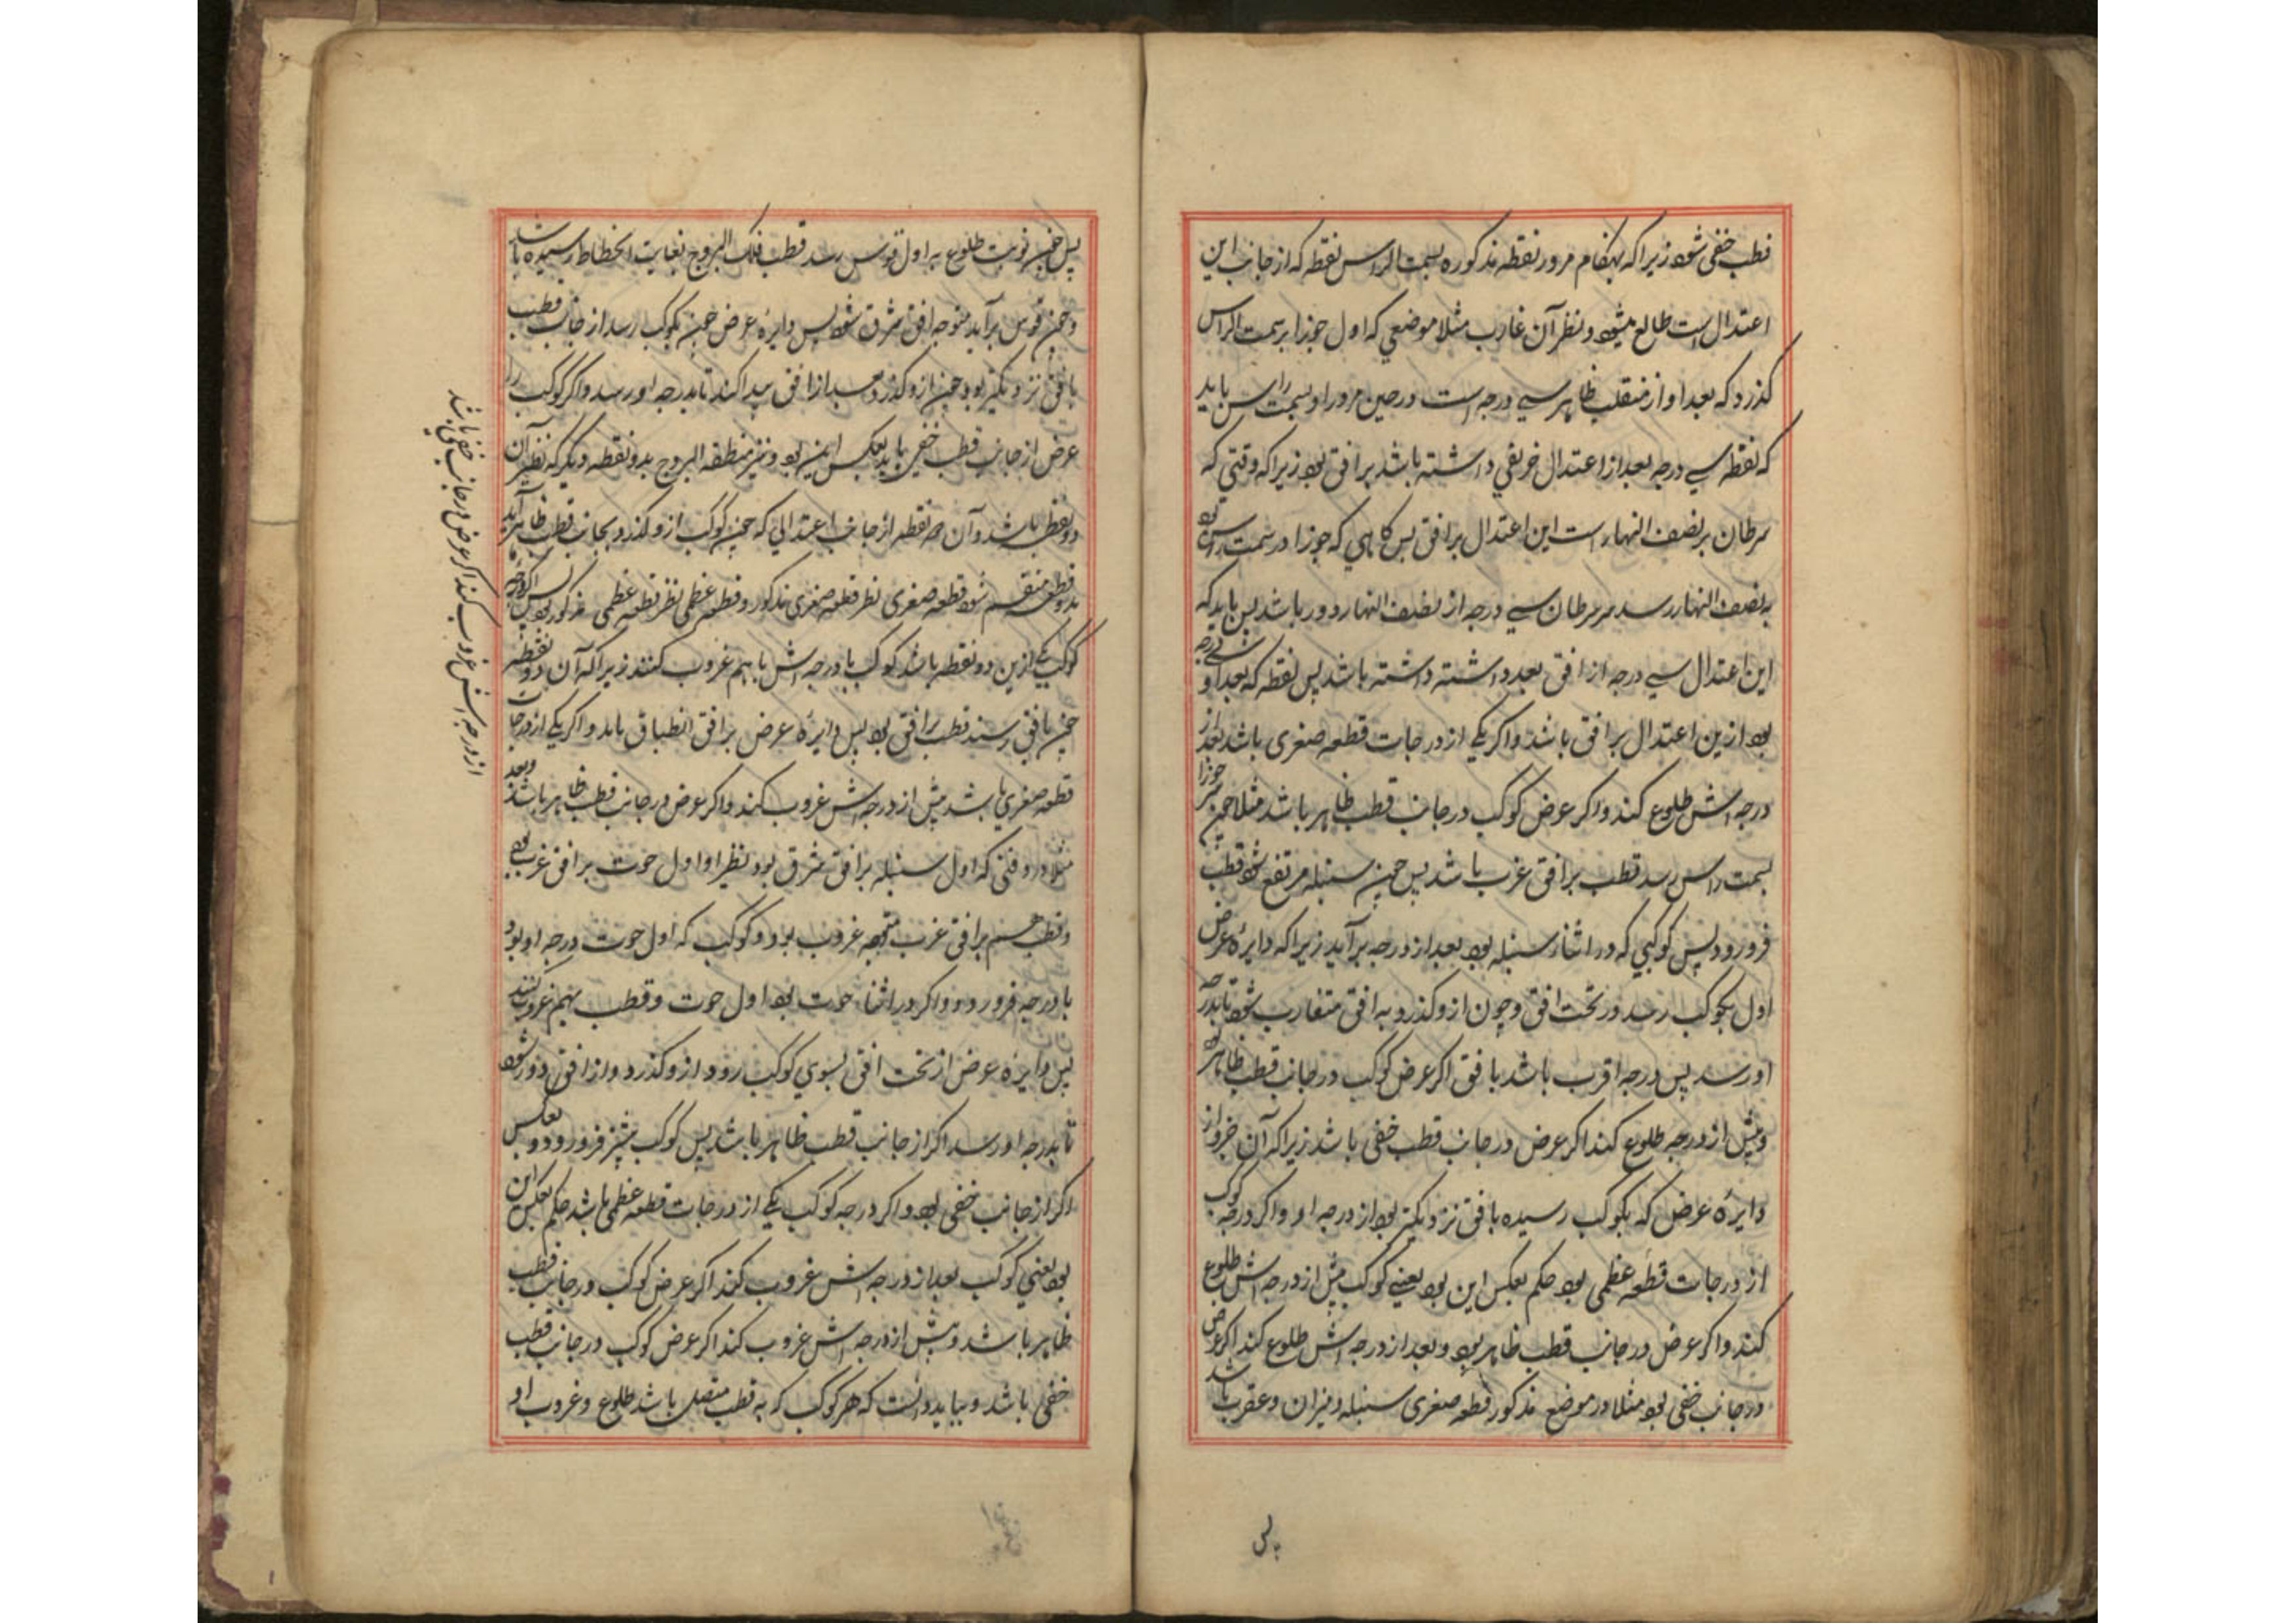 قطب خفی شود زیرا که بهنگام مرور نقطه مذکوره بسمت الراس نقطه که از جانب این
اعتدال است طالع میشود و نظر آن غارب مثلا موضعی که اول جوزا بر سمت الراس
کذرد که بعد او از منقلب ظاهر سی درجه است در حین مرور او بسمت راس باید
که نقطه سی درجه بعد از اعتدال خریفی داشته باشد بر افق بود زیرا که وقتی که
سرطان بر نصف النهار است این اعتدال بر افق پس کاهی که جوزا در سمت راس بود
به نصف النهار رسد سر سرطان سی درجه از نصف النهار دور باشد پس باید که
این اعتدال سی درجه از افق بعد داشته داشته باشد پس نقطه که بعد او سی درجه
بود ازین اعتدال بر افق باشد و اکر یکی از درجات قطعه صغری باشد بعد از
درجه اش طلوع کند و اکر عرض کوکب در جانب قطب ظاهر باشد مثلا چون سر جوزا
بسمت راس رسد قطب بر افق غرب باشد پس چون سنبله مرتفع شود قطب
فرو رود پس کوکبی که در اثناء سنبله بود بعد از درجه برآید زیرا که دایرهٔ عرض
اول بکوکب رسد در تحت افق و چون ازو کذرد به افق متقارب شود تا بدرجه
او رسد پس درجه اقرب باشد بافق اکر عرض کوکب در جانب قطب ظاهر بود
و پیش از درجه طلوع کند اکر عرض در جانب قطب خفی باشد زیرا که آن جزو از
دایرهٔ عرض که بکوکب رسیده بافق نزدیکتر بود از درجه او و اکر درجه کوکب
از درجات قطعه عظمی بود حکم بعکس این بود یعنی کوکب پیش از درجه اش طلوع
کند و اکر عرض در جانب قطب ظاهر بود و بعد از درجه اش طلوع کند اکر عرض
در جانب خفی بود مثلا در موضع مذکور قطعه صغری سنبله و میزان و عقرب باشد
پس
پس چون نوبت طلوع به اول قوس رسد قطب فلک البروج بغایت انحطاط رسیده باشد
و چون قوس برآید متوجه افق شرق شود پس دایرهٔ عرض چون بکوکب رسد از جانب قطب
بافق نزدیکتر بود چون ازو کذرد بعد از افق پیدا کند تا بدرجه او رسد و اکر کوکب را
عرض از جانب قطب خفی باید بعکس این بود و نیز منطقه البروج بدو نقطه دیکر که نظیر آن
دو نقطه باشد و آن هر نقطه از جانب اعتدالی که چون کوکب ازو کذرد بجانب قطب ظاهر آید
بدو قطعه منقسم شود قطعه صغری نظر قطعه صغری مذکور و قطعه عظمی نظر قطعه عظمی مذکور بود پس اکر درجه
کوکب یکی ازین دو نقطه باشد کوکب با درجه اش باهم غروب کنند زیرا که آن دو نقطه
چون بافق رسند قطب بر افق بود پس دایرهٔ عرض بر افق انطباق یابد و اکر یکی از درجات
قطعه صغری باشد پیش از درجه اش غروب کند و اکر عرض در جانب قطب ظاهر باشد و بعد
مثلا در وقتی که اول سنبله بر افق شرق بود نظیر او اول حوت بر افق غرب بود
و قطب هم بر افق غرب متوجه غروب بود و کوکب که اول حوت درجه او بود
با درجه فرو رود و اکر در اثناء حوت بود اول حوت و قطب بهم غروب کنند
پس دایرهٔ عرض از تحت افق بسوی کوکب رود و ازو کذرد و از افق دور شود
تا بدرجه او رسد اکر از جانب قطب ظاهر باشد پس کوکب پیشتر فرو رود و بعکس
اکر از جانب خفی بود و اکر درجه کوکب یکی از درجات قطعه عظمی باشد حکم بعکس این
بود یعنی کوکب بعد از درجه اش غروب کند اکر عرض کوکب در جانب قطب
ظاهر باشد و پیش از درجه اش غروب کند اکر عرض کوکب در جانب قطب
خفی باشد و بباید دانست که هر کوکب که به قطب متصل باشد طلوع و غروب او
از درجه اش غروب کند اکر عرض در جانب خفی باشد